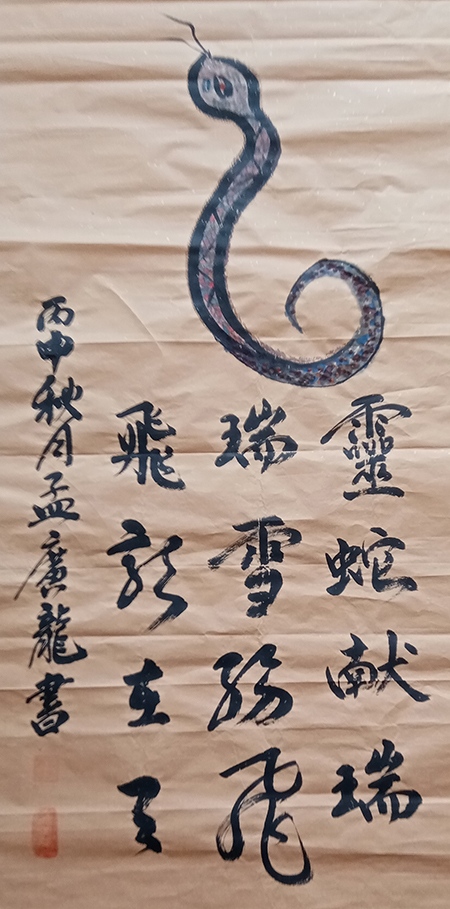 靈蛇献瑞
瑞雪紛飛
飛龙在天
丙申秋月孟廣龍書